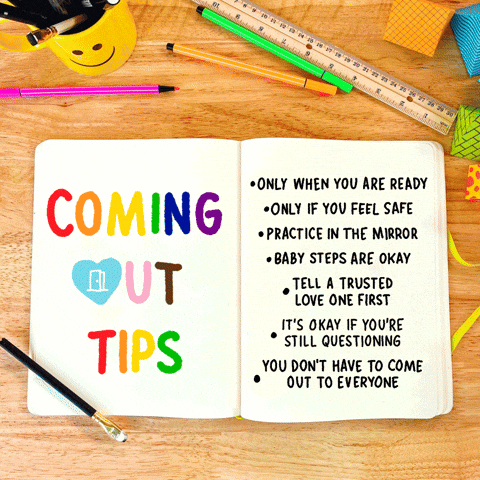 COMING
UT
TIPS
•ONLY WHEN YOU ARE READY
•ONLY IF YOU FEEL SAFE
•PRACTICE IN THE MIRROR
•BABY STEPS ARE OKAY
•TELL A TRUSTED
LOVE ONE FIRST
•IT'S OKAY IF YOU'RE
STILL QUESTIONING
•YOU DON'T HAVE TO COME
OUT TO EVERYONE